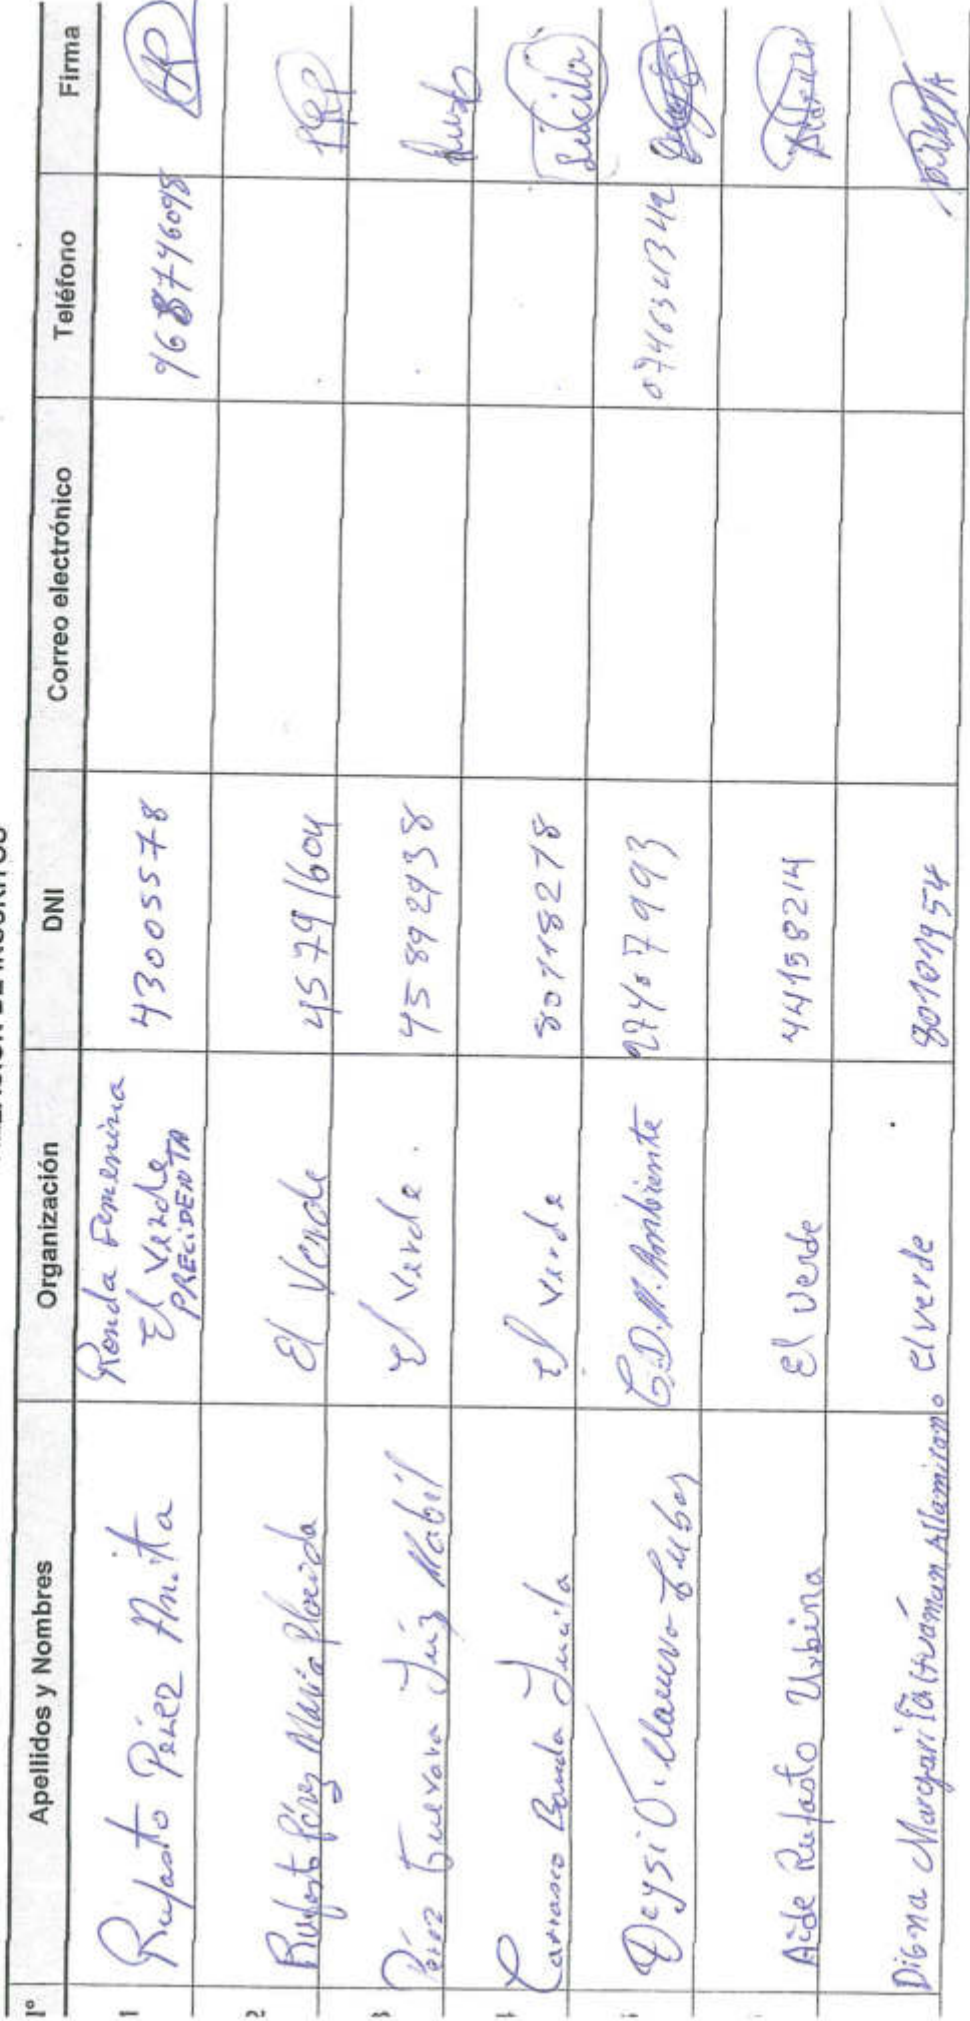 Nº Apellidos y Nombres Organización DNI Correo electrónico Teléfono Firma
1 Rufasto Pérez Anita Ronda Femenina El Verde PRECIDENTA 43005578 968746098
2 Rufasto Pérez María Placida El Verde 45791604
3 Pérez Guevara Luz Mabil El Verde. 45892938
Carrasco Banda Lucila El Verde 80118278 Lucila
Deysi C.D.M. Ambiente 27407993
Aide Rufasto Urbina El Verde 44158214
Digna Margari El verde 80101954